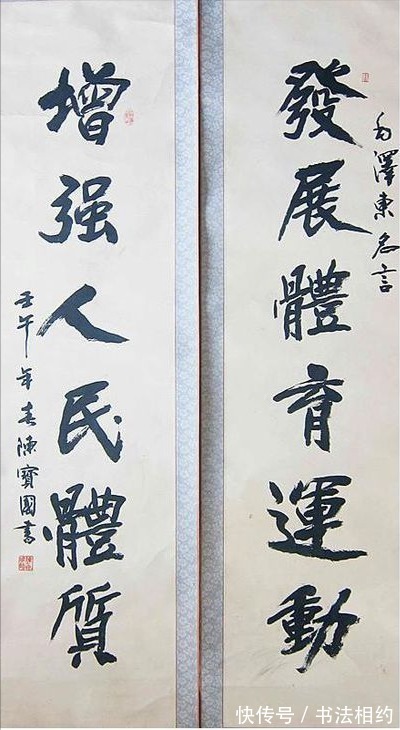 毛澤東名言
發展體育運動
增强人民體质
壬午年春陳寶國書
快传号 / 书法相约